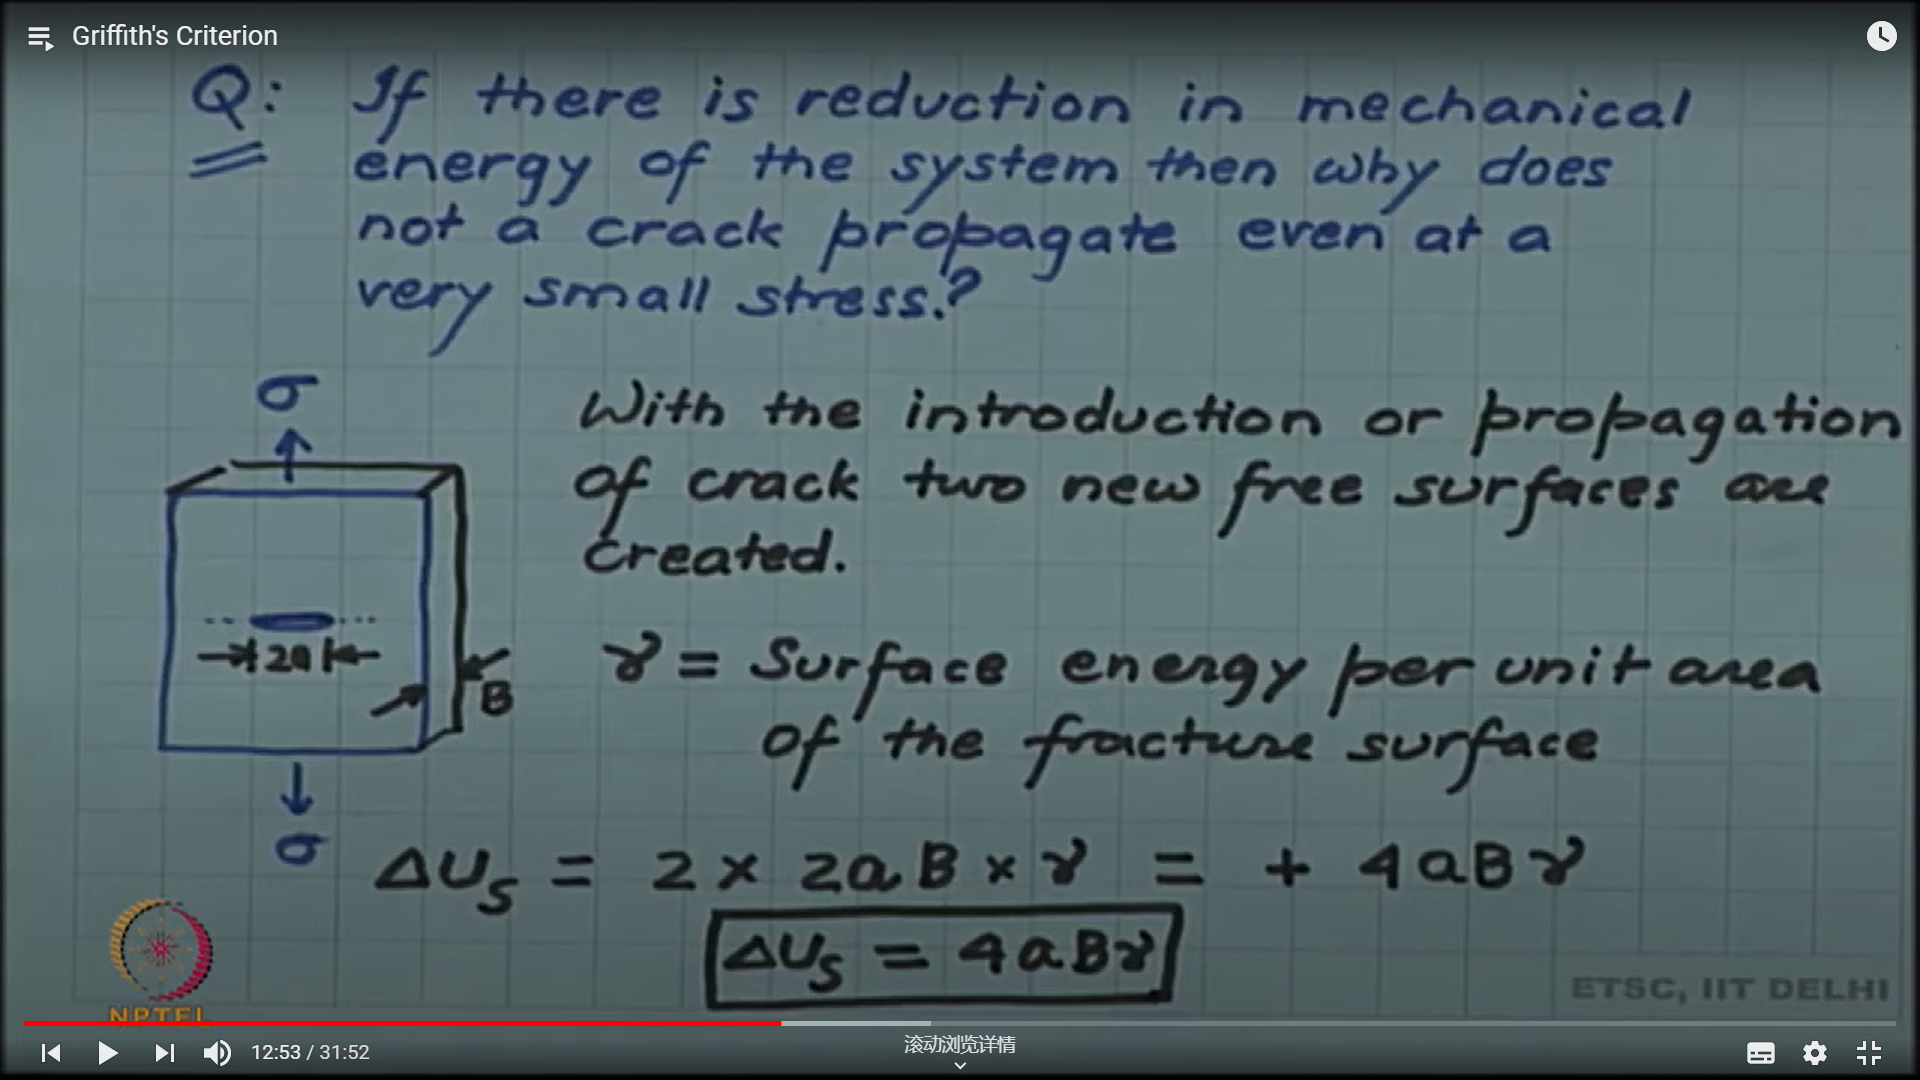 Griffith's Criterion
Q: If there is reduction in mechanical
energy of the system then why does
not a crack propagate even at a
very small stress.?
σ
With the introduction or propagation
of crack two new free surfaces are
created.
2a
B
γ = Surface energy per unit area
of the fracture surface
σ
ΔUs = 2 × 2aB × γ = + 4aBγ
ΔUs = 4aBγ
NPTEL
ETSC, IIT DELHI
12:53 / 31:52
滚动浏览详情